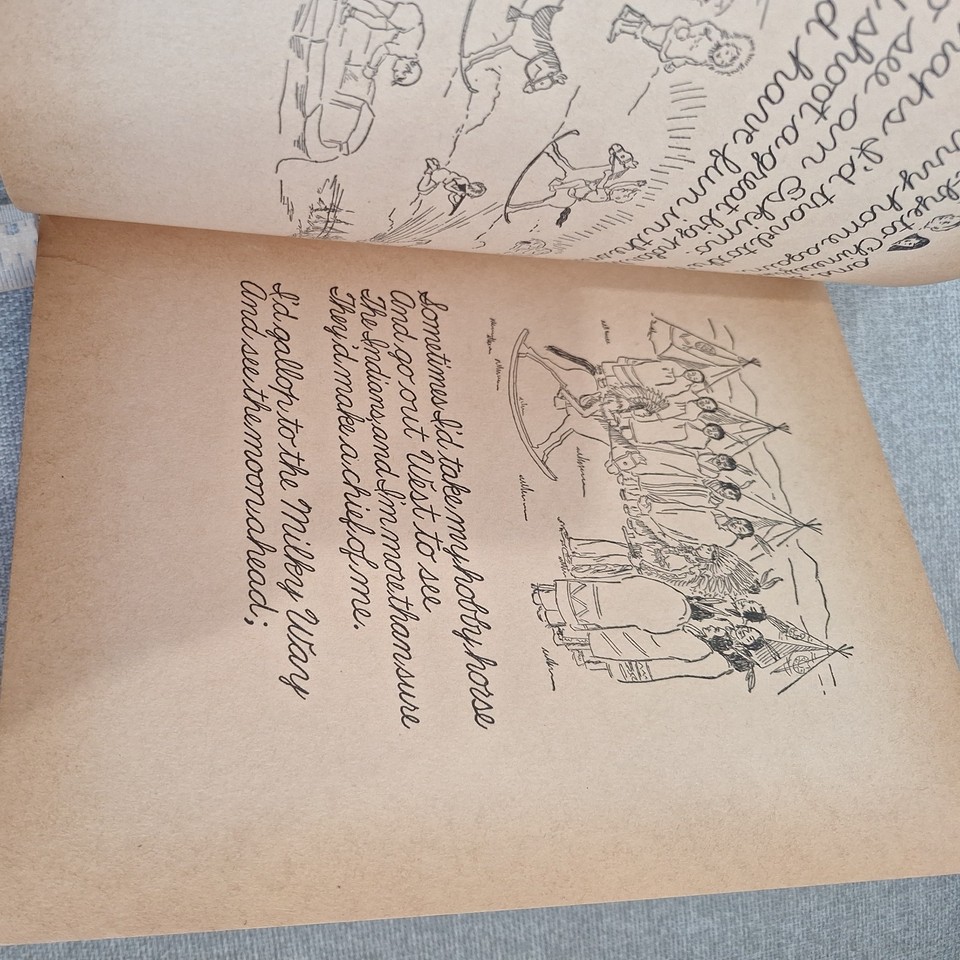 home
I'd travel to
see an Eskimo
shoot a great big
have fun in the
Sometimes I'd take my hobby horse
And go out West to see
The Indians, and I'm more than sure
They'd make a chief of me.
I'd gallop to the Milky Way
And see the moons ahead;